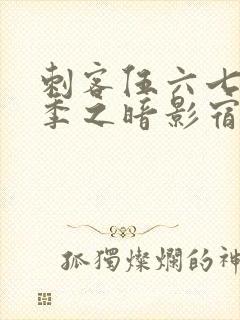 刺客伍六七
季之暗影宿
孤獨燦爛的神